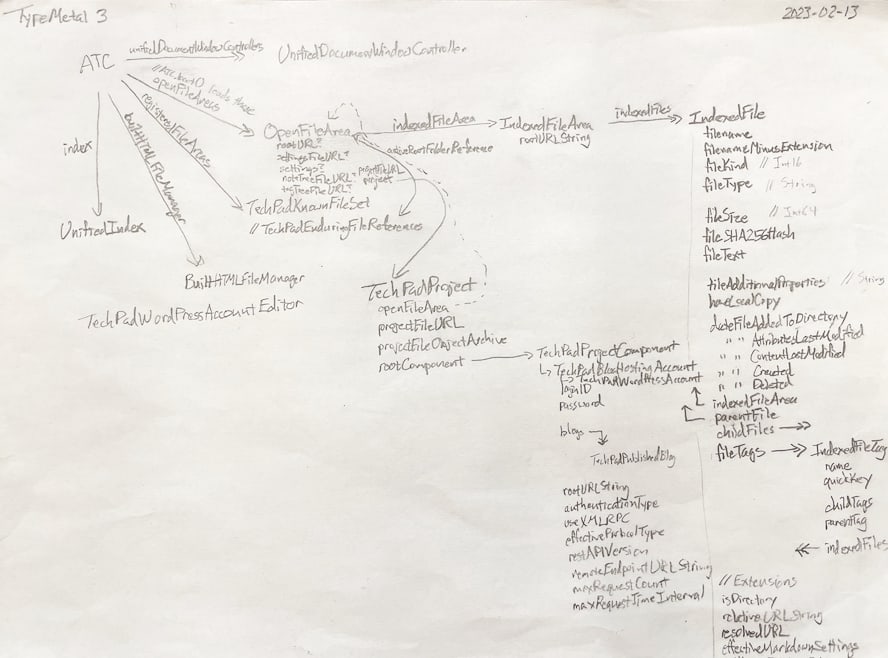 TypeMetal 3
2023-02-13
ATC
unifiedDocumentWindowControllers
UnifiedDocumentWindowController
//ATC.boot() loads these
openFileAreas
registeredFileAreas
builtHTMLFileManager
index
UnifiedIndex
BuiltHTMLFileManager
TechPadWordPressAccountEditor
OpenFileArea
rootURL?
settingsFileURL?
settings?
noteTreeFileURL?
tagTreeFileURL?
projectFileURL
project
TechPadKnownFileSet
// TechPadEnduringFileReferences
indexedFileArea
activeRootFolderReference
IndexedFileArea
rootURLString
indexedFiles
TechPadProject
openFileArea
projectFileURL
projectFileObjectArchive
rootComponent
TechPadProjectComponent
↳ TechPadBlogHostingAccount
↳ TechPadWordPressAccount
loginID
password
blogs
TechPadPublishedBlog
rootURLString
authenticationType
useXMLRPC
effectiveProtocolType
restAPIVersion
remoteEndpointURLString
maxRequestCount
maxRequestTimeInterval
IndexedFile
filename
filenameMinusExtension
fileKind // Int16
fileType // String
fileSize // Int64
fileSHA256Hash
fileText
fileAdditionalProperties // String
haveLocalCopy
dateFileAddedToDirectory
" " AttributesLastModified
" " ContentLastModified
" " Created
" " Deleted
indexedFileArea
parentFile
childFiles
fileTags
IndexedFileTag
name
quickKey
childTags
parentTag
indexedFiles
// Extensions
isDirectory
relativeURLString
resolvedURL
effectiveMarkdownSettings